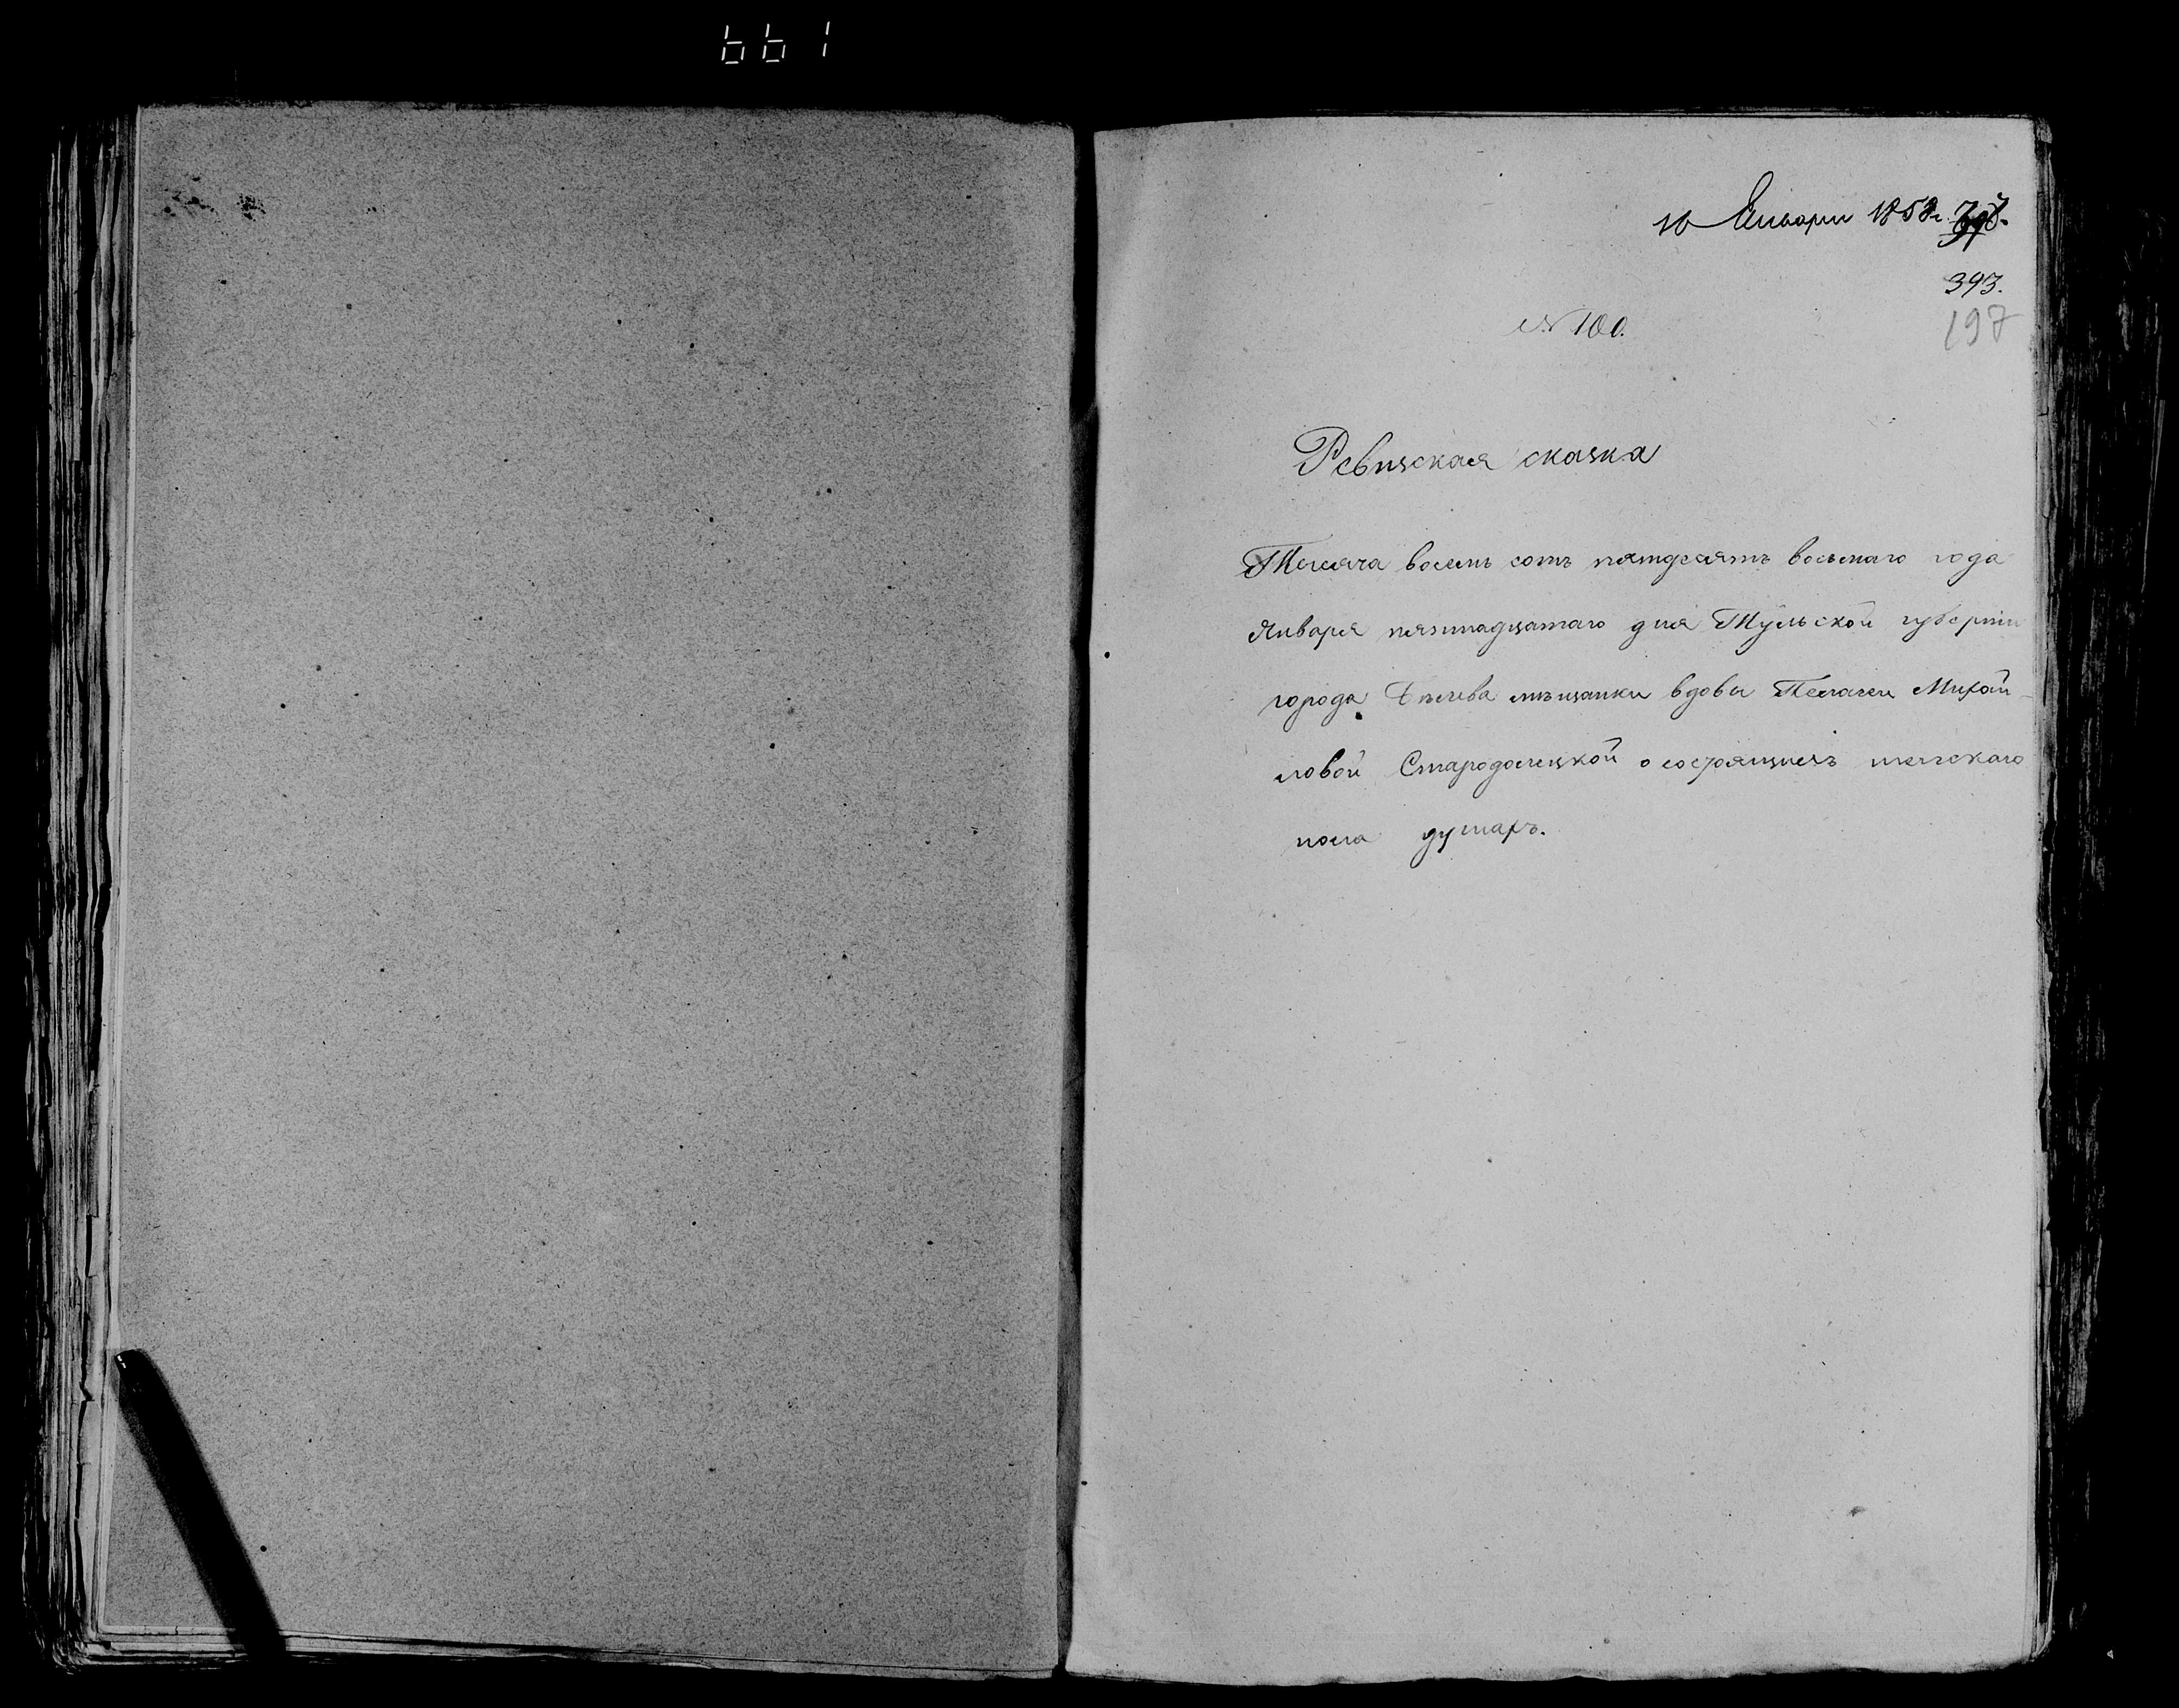 661
10 Января 1858г.
393.
197
№ 100.
Ревизская сказка
Тысяча восемь сотъ пятдесятъ восьмаго года
Января пятнадцатаго дня Тульской губерніи
города Бѣлева мѣщанки вдовы Пелагеи Михай-
ловой Стародомецкой о состоящихъ женскаго
пола душахъ.